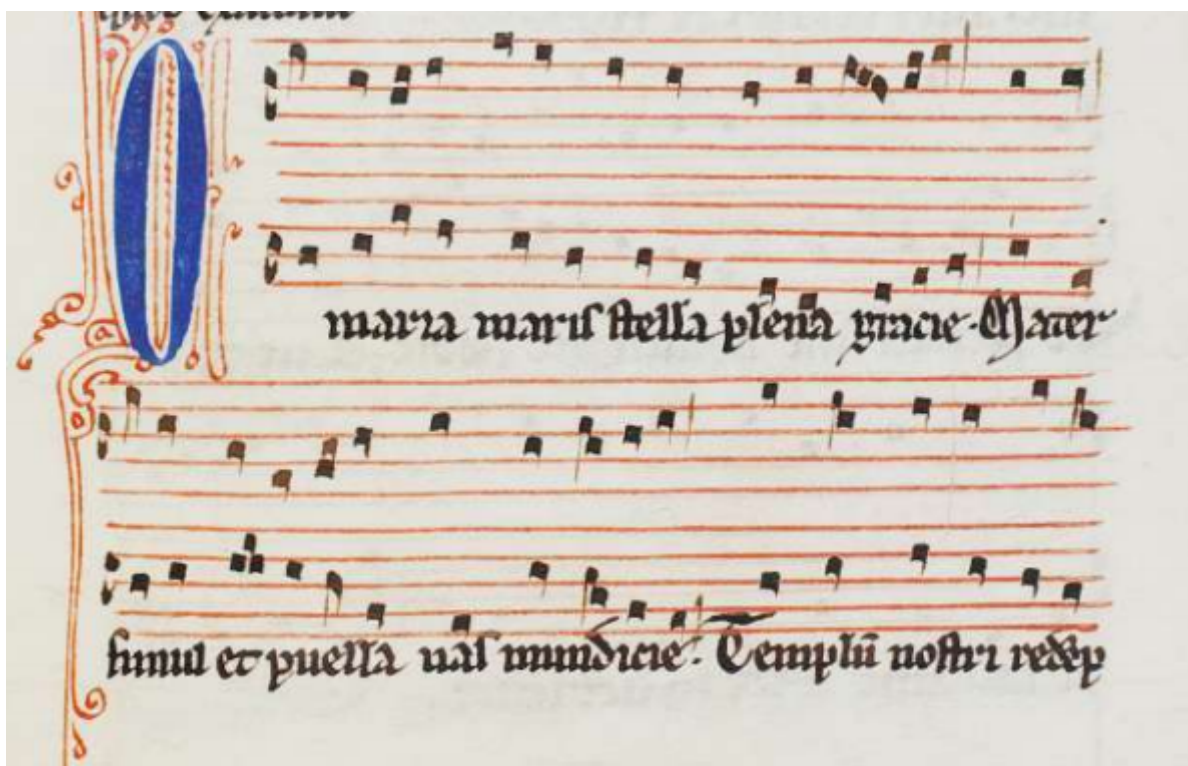 O
maria maris stella plena gracie. Mater
simul et puella uas mundicie. Templū nostri redēp